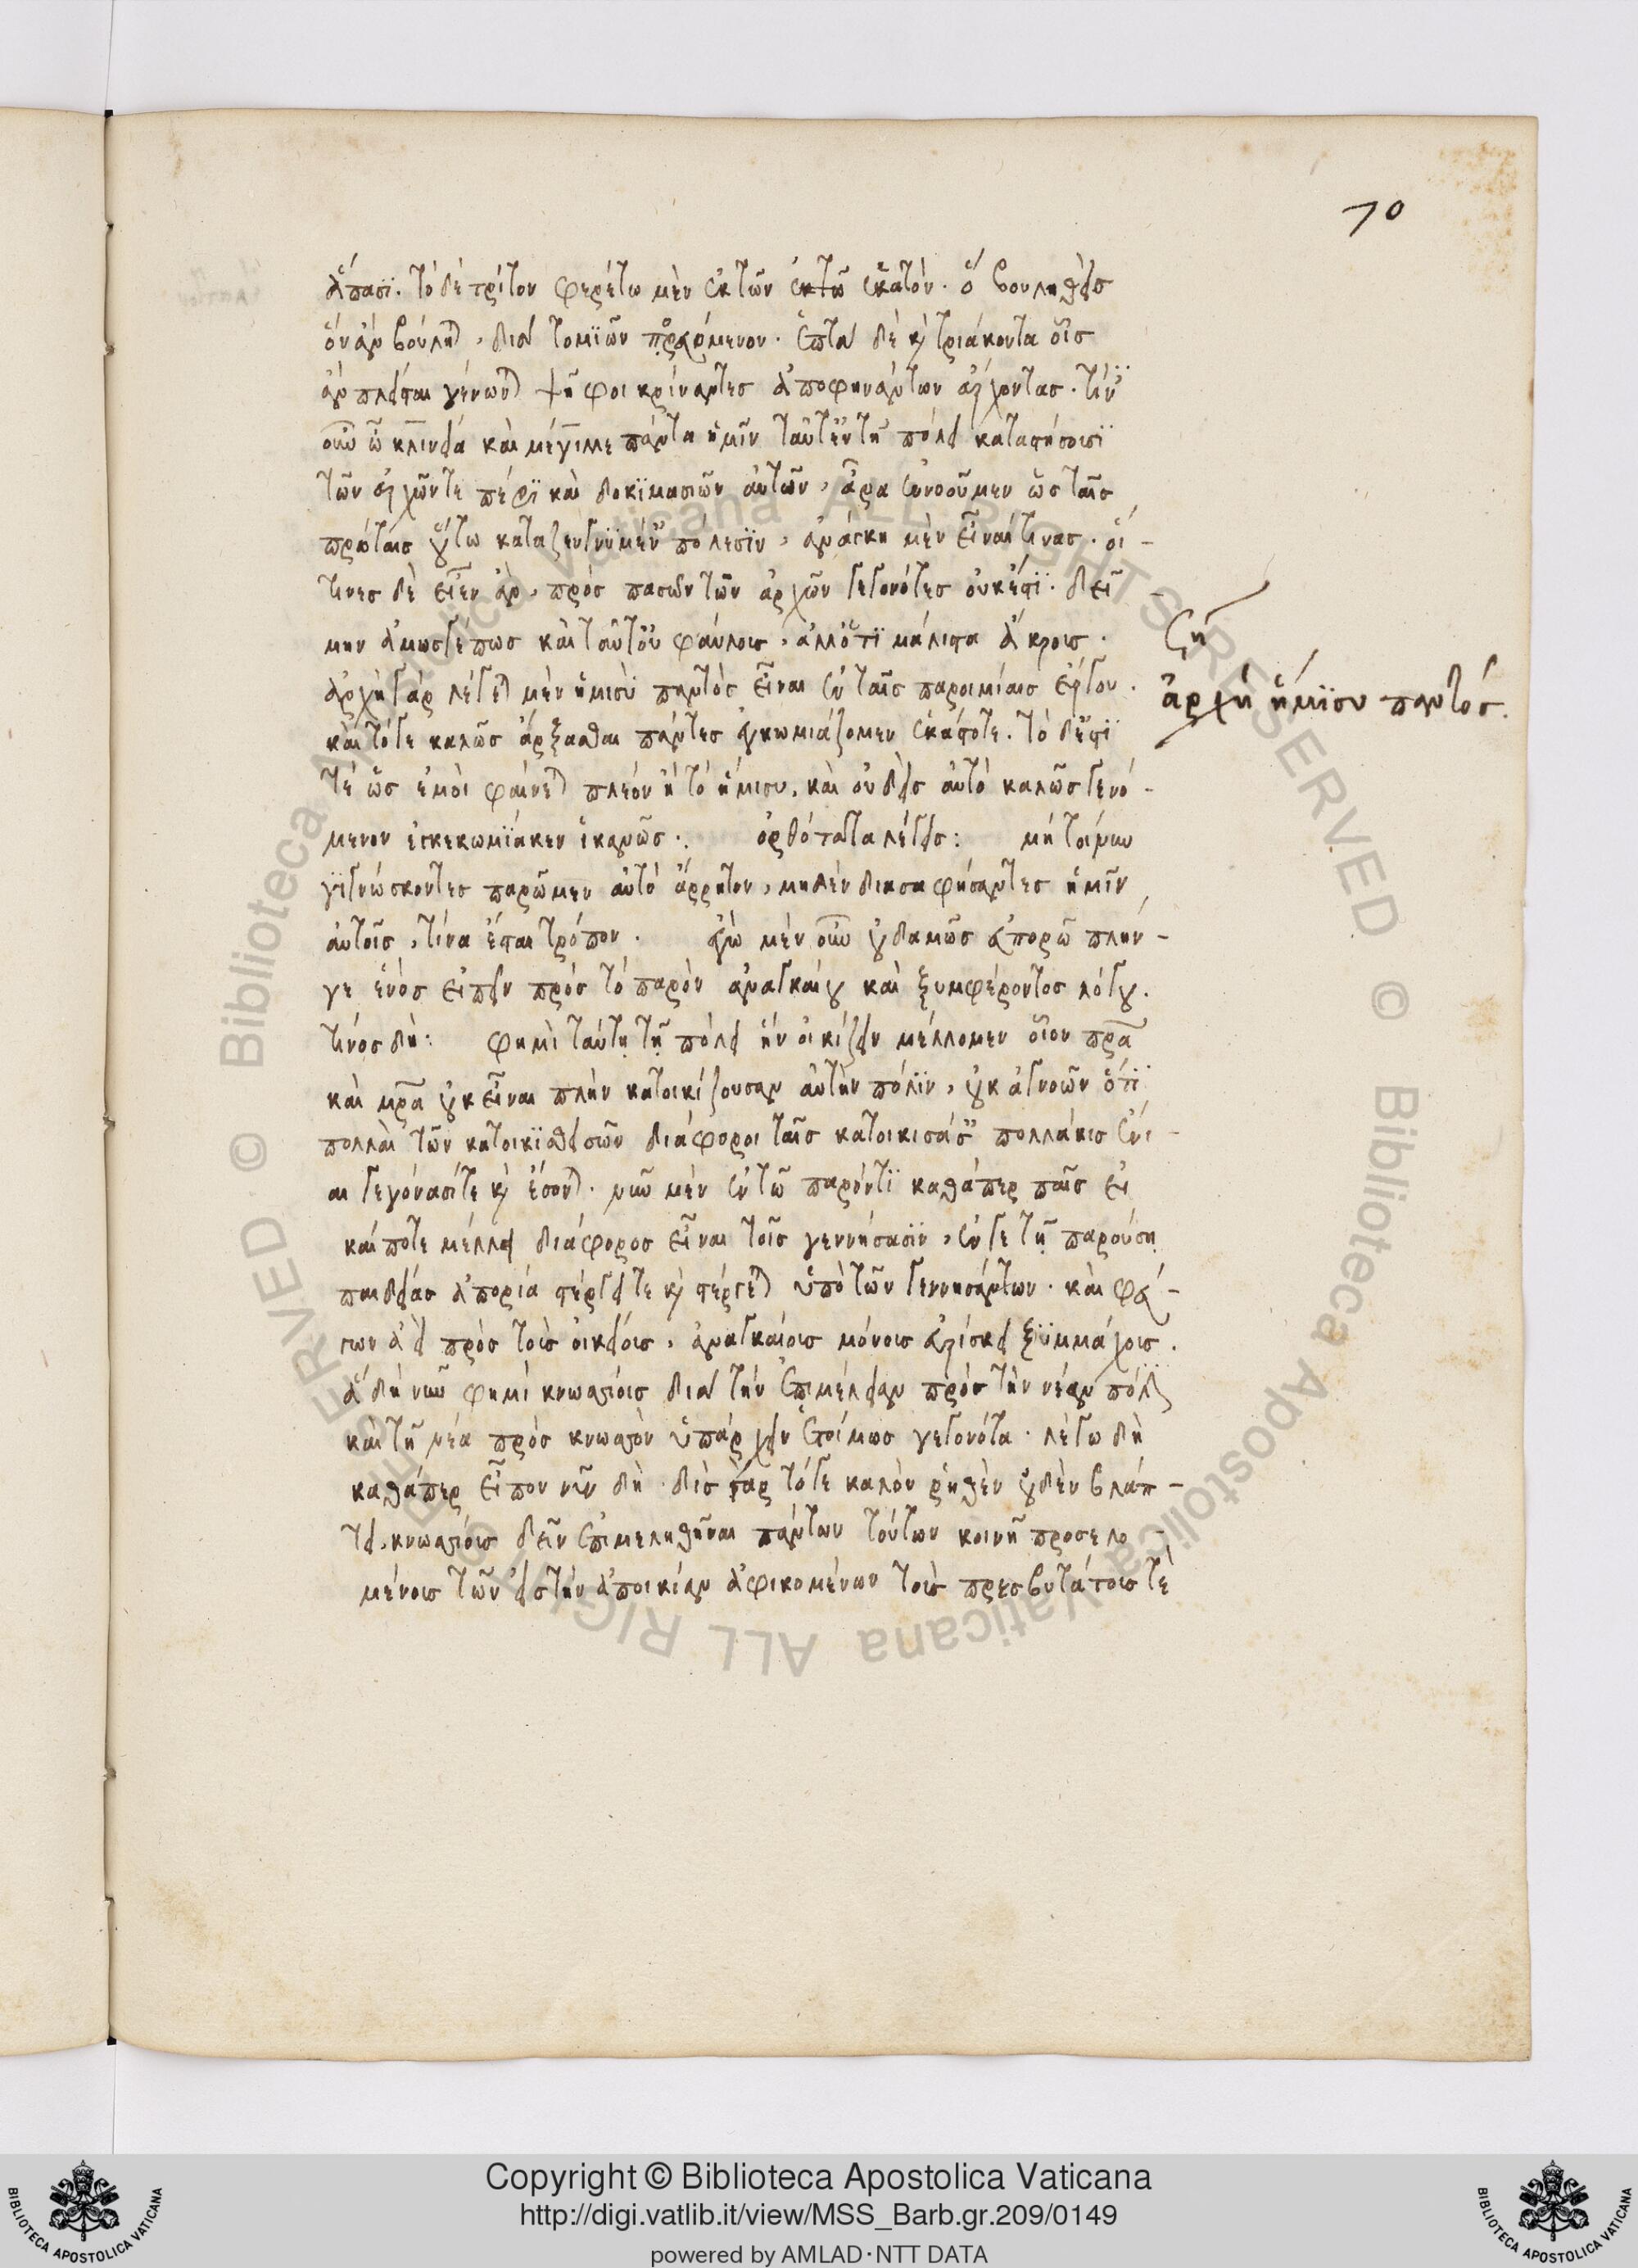 70
ἅπασι. τὸ δὲ τρίτον φερέτω μὲν ἐκ τῶν ἑκατὸν. ὁ βουληθεὶς
ὃν ἂν βούληται, διὰ τομίων πορευόμενον. ἑπτὰ δὲ καὶ τριάκοντα οἷς
ἂν πλεῖσται γένωνται ψῆφοι κρίναντες ἀποφηνάντων ἄρχοντας. τίνες
οὖν ὦ κλεινία καὶ μέγιλλε πάντα ἡμῖν ταῦτ' ἐν τῇ πόλει καταστήσουσι
τῶν ἀρχῶν τε πέρι καὶ δοκιμασιῶν αὐτῶν, ἆρα ἐννοοῦμεν ὡς ταῖς
πρώταις οὕτω καταζευγνυμέναις πόλεσιν, ἀνάγκη μὲν εἶναί τινας. οἵ-
τινες δὲ εἶεν ἂν, πρὸς πασῶν τῶν ἀρχῶν γεγονότες οὐκ ἔστι. δεῖ
μὴν ἀμωσγέπως καὶ ταῦτ' οὐ φαύλοις, ἀλλ' ὅτι μάλιστα ἄκροις.
ἀρχὴ γὰρ λέγεται μὲν ἥμισυ παντὸς εἶναι ἐν ταῖς παροιμίαις ἔργου.
καὶ τό γε καλῶς ἄρξασθαι πάντες ἐγκωμιάζομεν ἑκάστοτε. τὸ δ' ἔστι
τέ ὡς ἐμοὶ φαίνεται πλέον ἢ τὸ ἥμισυ, καὶ οὐδεὶς αὐτὸ καλῶς γενό-
μενον ἐγκεκωμίακεν ἱκανῶς. ὀρθότατα λέγεις: μὴ τοίνυν
γιγνώσκοντες παρῶμεν αὐτὸ ἄρρητον, μηδὲν διασαφήσαντες ἡμῖν
αὐτοῖς, τίνα ἔσται τρόπον. ἐγὼ μὲν οὖν οὐδαμῶς εὐπορῶ πλήν-
γε ἑνὸς εἰπεῖν πρὸς τὸ παρὸν ἀναγκαίου καὶ ξυμφέροντος λόγου.
τίνος δή: φημὶ ταύτῃ τῇ πόλει ἣν οἰκίζειν μέλλομεν οἷον πρα
καὶ μρα οὐκ εἶναι πλὴν κατοικίζουσαν αὐτὴν πόλιν, οὐκ ἀγνοῶν ὅτι
πολλαὶ τῶν κατοικισθεισῶν διάφοροι ταῖς κατοικισάσαις πολλάκις ἔνι-
αι γεγόνασί τε καὶ ἔσονται. νῦν μὲν ἐν τῷ παρόντι καθάπερ παῖς εἰ
καί ποτε μέλλει διάφορος εἶναι τοῖς γεννήσασιν, ἔν γε τῇ παρούσῃ
παιδείας ἀπορία στέργει τε καὶ στέργεται ὑπὸ τῶν γεννησάντων. καὶ φεύ-
γων ἀεὶ πρὸς τοὺς οἰκείους, ἀναγκαίους μόνους εὑρίσκει ξυμμάχους.
ἃ δὴ νῦν φημὶ κνωσσίοις διὰ τὴν ἐπιμέλειαν πρὸς τὴν νέαν πόλιν
καὶ τῇ νέα πρὸς κνωσσὸν ὑπάρχειν ἑτοίμως γεγονότα. λέγω δὴ
καθάπερ εἶπον νῦν δὴ. δὶς γὰρ τό γε καλὸν ῥηθὲν οὐδὲν βλάπ-
τει, κνωσσίους δεῖν ἐπιμεληθῆναι πάντων τούτων κοινῇ προσελο-
μένους τῶν εἰς τὴν ἀποικίαν ἀφικομένων τοὺς πρεσβυτάτους τὲ
ζή
ἀρχὴ ἥμισυ παντός.
Copyright © Biblioteca Apostolica Vaticana
http://digi.vatlib.it/view/MSS_Barb.gr.209/0149
powered by AMLAD·NTT DATA
BIBLIOTECA APOSTOLICA VATICANA
BIBLIOTECA APOSTOLICA VATICANA
© Biblioteca Apostolica Vaticana ALL RIGHTS RESERVED
© Biblioteca Apostolica Vaticana ALL RIGHTS RESERVED